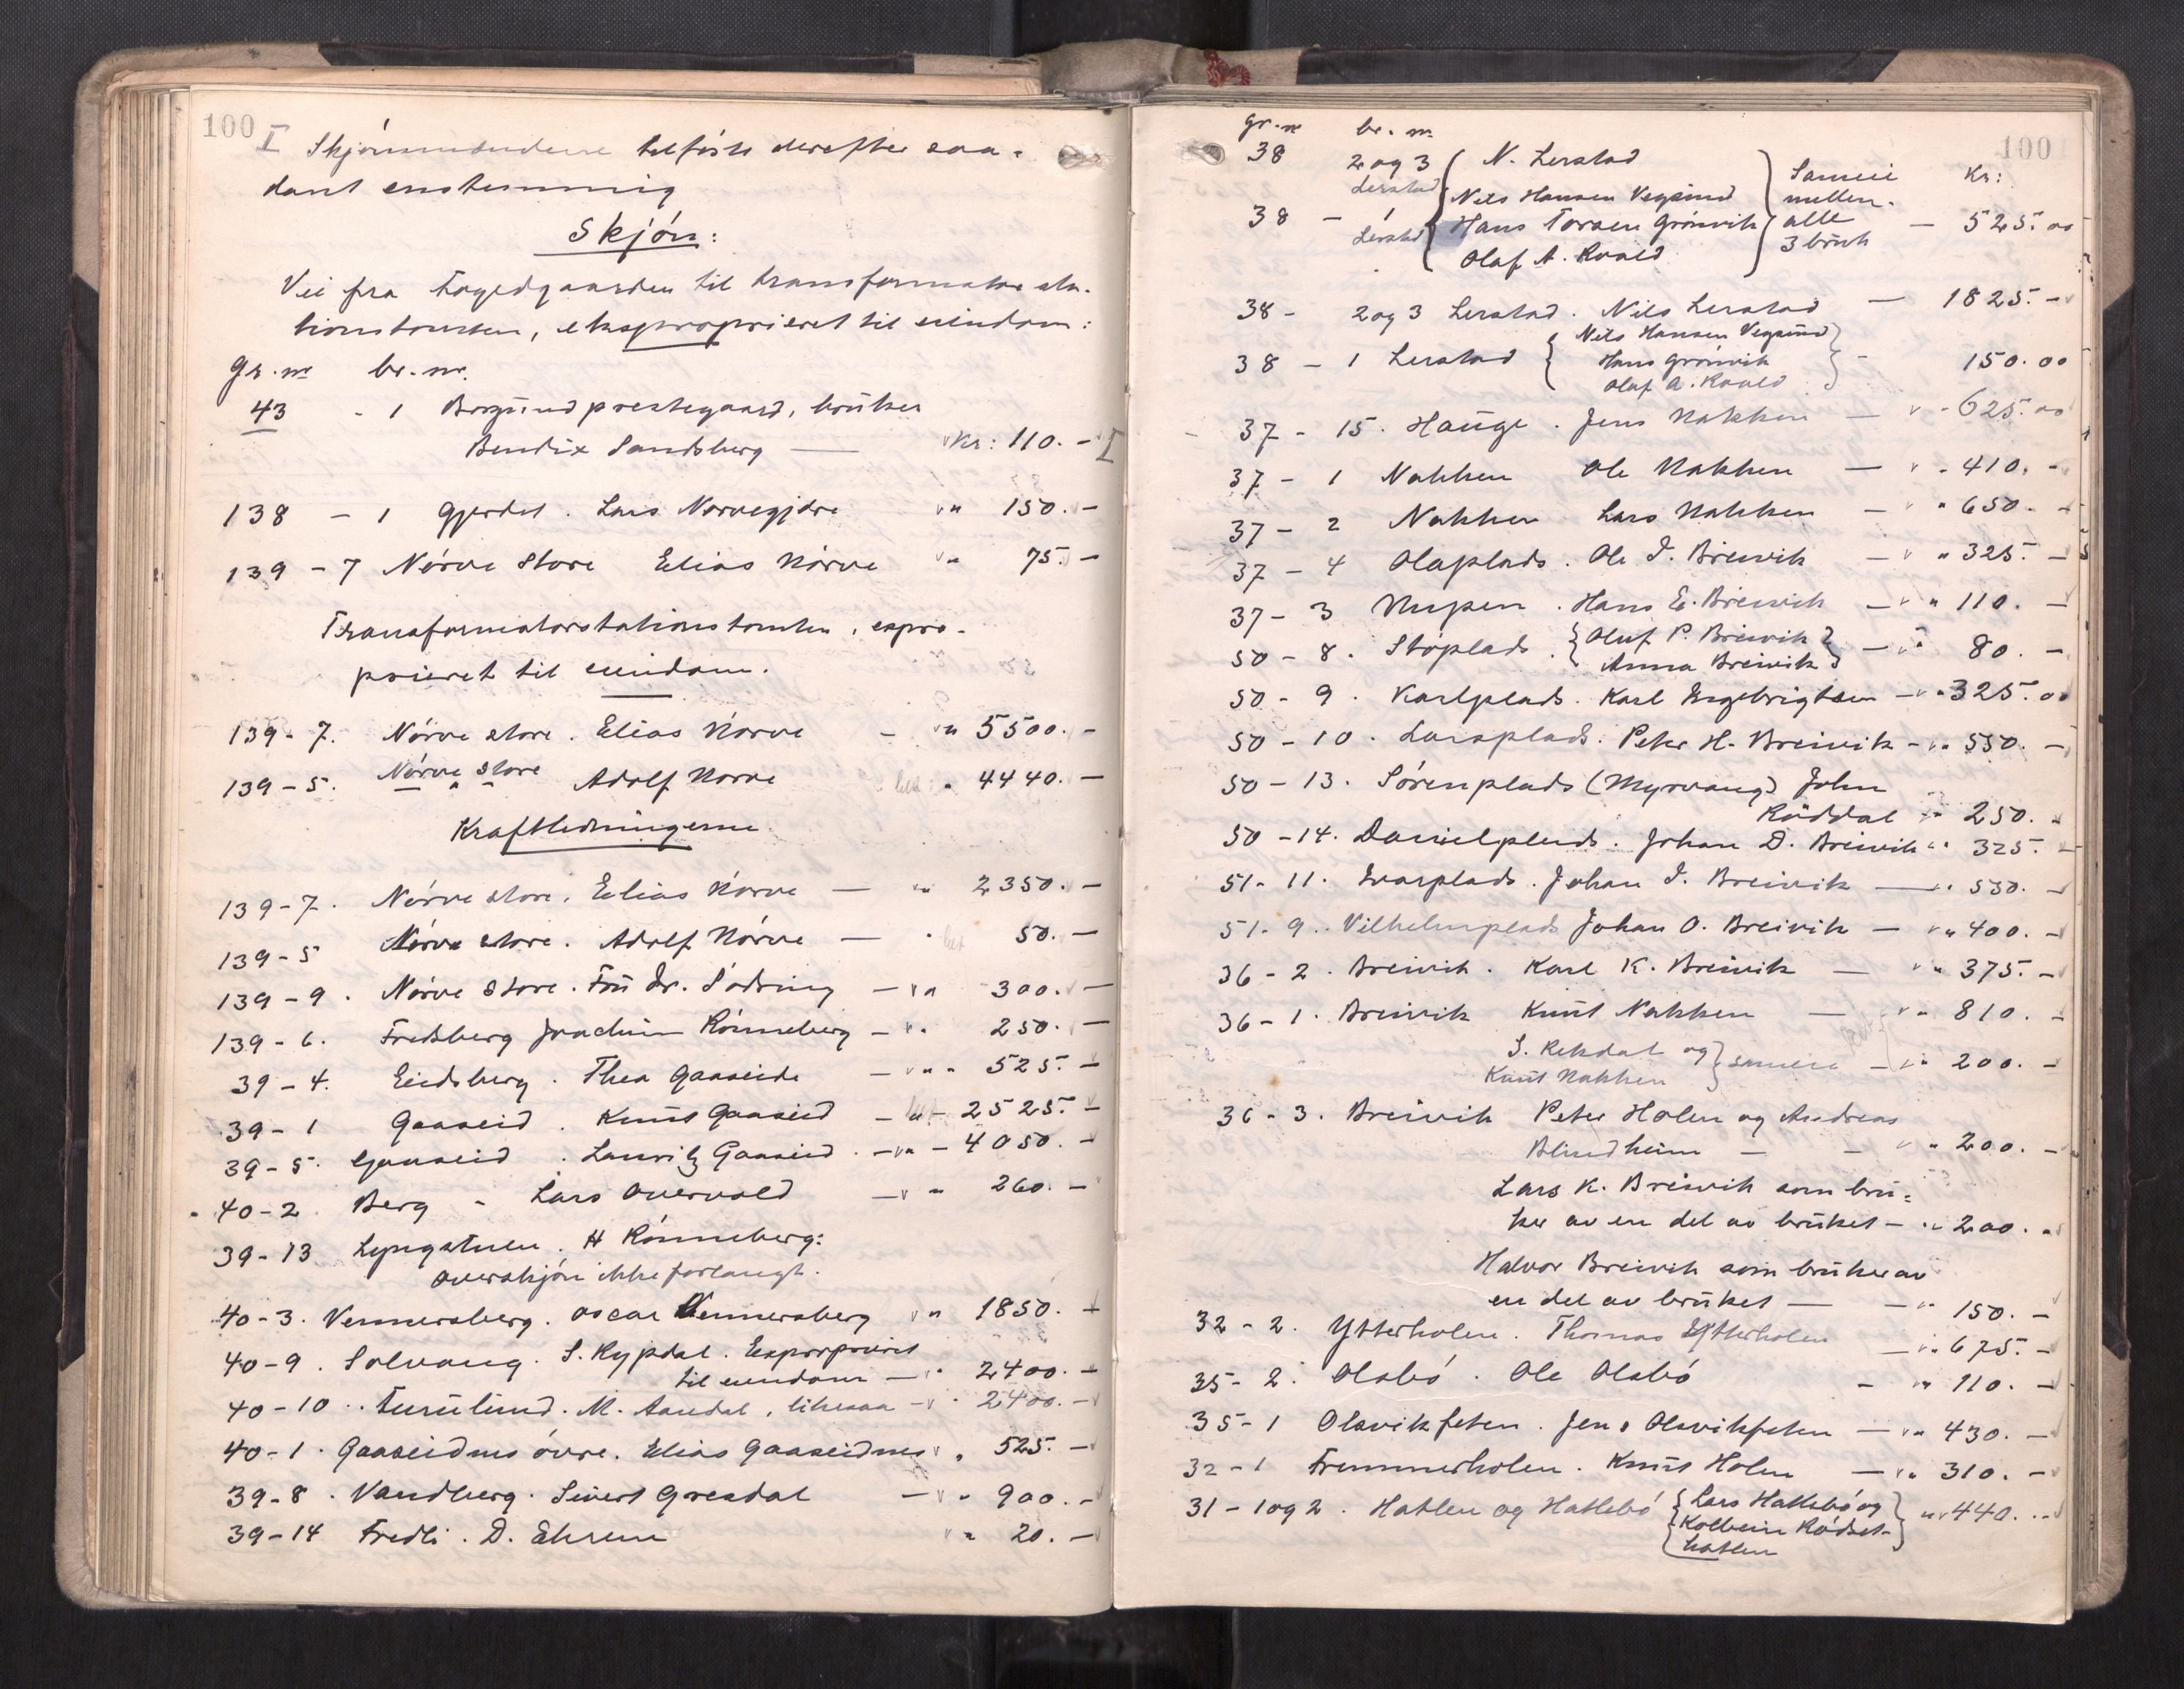 100
I Skjønnsmændene tilføiet derefter saa-
dant enstemmig
Skjøn:
Vei fra Fogedgaarden til transformatorsta-
tionstomten, ekspropriert til eiendom:
Gr. nr br. nr.
43 - 1 Borgund prestegaard, bruker
Bendix Sandsberg — Kr: 110. - I
138 - 1 Gjerdet. Lars Nørvegjære " 150. -
139 - 7 Nørve store Elias Nørve " 75. -
Transformatorstationstomten, expro-
prieret til eiendom.
139 - 7. Nørve store. Elias Nørve - " 5500. -
139 - 5. Nørve store Adolf Nørve " 4440. -
Kraftledningerne
139 - 7. Nørve store. Elias Nørve — " 2350. -
139 - 5 Nørve store. Adolf Nørve — " 50. -
139 - 9. Nørve store. Fru Dr. Sødring — " 300. -
139 - 6. Fredsberg Joachim Rønneberg - " 250. -
39 - 4. Eidsberg. Thea Gaaseide — " 525. -
39 - 1 Gaaseid. Knut Gaaseid — 2525. -
39 - 5. Gaaseid. Lauritz Gaaseid. — " 4050. -
40 - 2 Berg - Lars Overvold — " 260. -
39 - 13 Lyngstuen. H Rønneberg:
Overskjøn ikke forlangt.
40 - 3. Vennersberg. Oscar Vennersberg " 1850. -
40 - 9. Solvang. S. Rypdal. Expropriert
til eiendom — " 2400. -
40 - 10. Furulund. M. Aandal, likesaa - " 2400. -
40 - 1. Gaaseidnes øvre. Elias Gaaseidnes " 525. -
39 - 8. Vandberg. Sivert Gresdal — " 900. -
39 - 14 Fredli. D. Ehrem " 20. -
100
gr. nr br. nr.
38 2 og 3 Lerstad { N. Lerstad
Nils Hansen Vegsund
38 - 1 Lerstad Hans Torsen Grønvik
Olaf A. Roald } Sameie mellem alle 3 bruk — Kr: 525. 00
38 - 2 og 3 Lerstad. Nils Lerstad — 1825. -
38 - 1 Lerstad { Nils Hansen Vegsund
Hans Grønvik
Olaf A. Roald } - 150. 00
37 - 15. Hauge. Jens Nakken — " 625. 00
37 - 1 Nakken Ole Nakken — " 410. -
37 - 2 Nakken Lars Nakken — " 650. -
37 - 4 Olaplads. Ole I. Breivik — " 325. -
37 - 3 Nupen. Hans E. Breivik — " 110. -
50 - 8. Støplads. { Oluf P. Breivik
Anna Breivik } — " 80. -
50 - 9. Karlplads. Karl Engebrigtsen — " 325. 00
50 - 10. Larsplads. Peter H. Breivik - " 550. -
50 - 13. Sørenplads (Myrvang) John
Røddal " 250. -
50 - 14. Danielplads. Johan D. Breivik " 325. -
51 - 11. Ivarplads. Johan I. Breivik — " 550. -
51 - 9. Vilhelmplads Johan O. Breivik — " 400. -
36 - 2. Breivik. Karl K. Breivik — " 375. -
36 - 1. Breivik Knut Nakken — " 810. -
S. Rekdal og
Knut Nakken } sameie — " 200. -
36 - 3. Breivik Peter Holen og Andreas
Blindheim — - " 200. -
Lars K. Breivik som bru-
ker av en del av bruket - " 200. -
Halvor Breivik som bruker av
en del av bruket — - " 150. -
32 - 2. Ytterholen. Thomas Ytterholen — " 675. -
35 - 2. Olsbø. Ole Olsbø - " 110. -
35 - 1 Olsvikfeten. Jens Olsvikfeten — " 430. -
32 - 1 Fremmerholen. Knut Holen — " 310. -
31 - 1 og 2. Hatlen og Hatlebø { Lars Hatlebø og
Kolbein Rødset-
hatlen } " 440. -